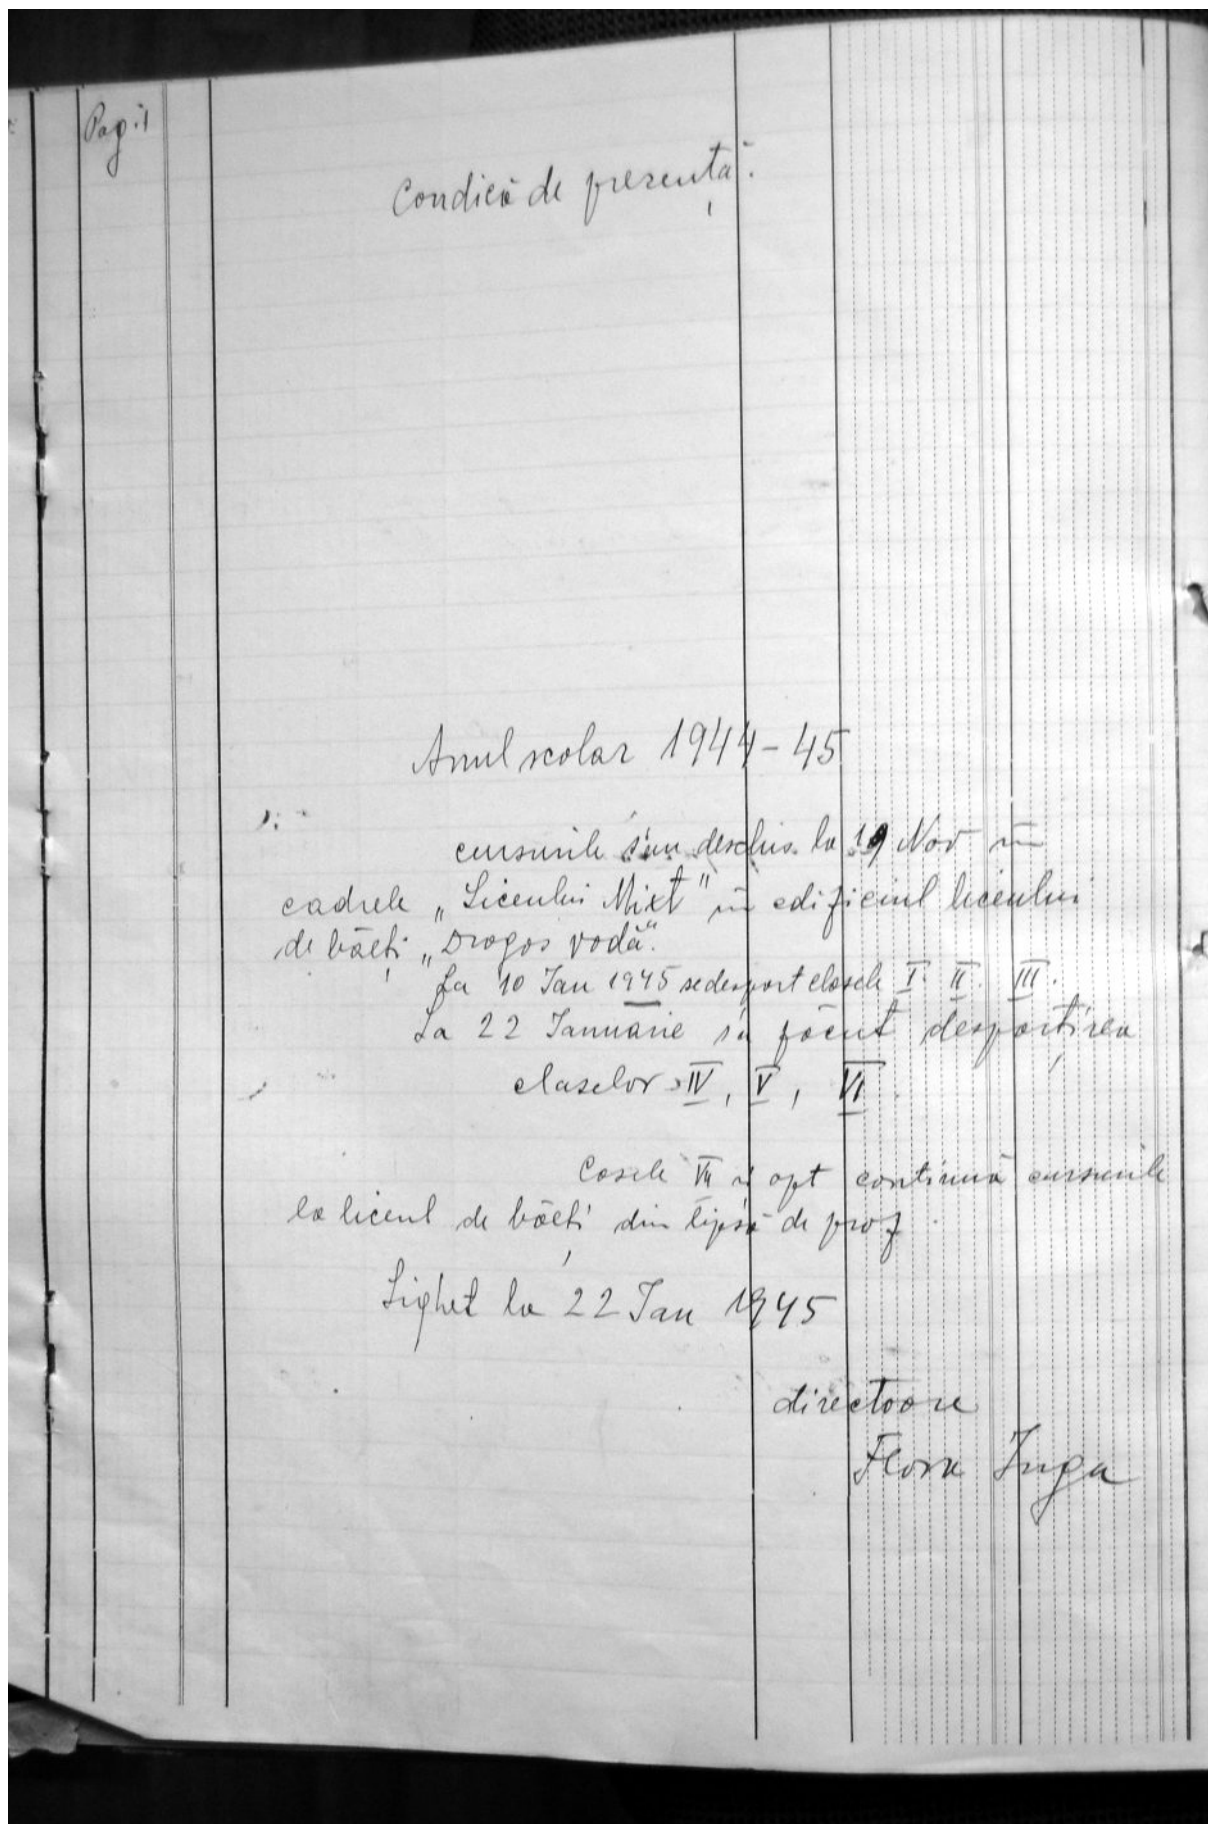 Pag. 1
Condică de prezență.
Anul scolar 1944-45
cursurile s'au deschis la 19 Nov în
cadrele „Liceului Mixt" în edificiul liceului
de băeți „Dragos Vodă".
La 10 Ian 1945 se despart clasele I. II. III.
La 22 Ianuarie s'a făcut despărțirea
claselor IV, V, VI.
Casele VII și opt continuă cursurile
la liceul de băeți din lipsă de prof.
Sighet la 22 Ian 1945
directoare
Flora Iuga